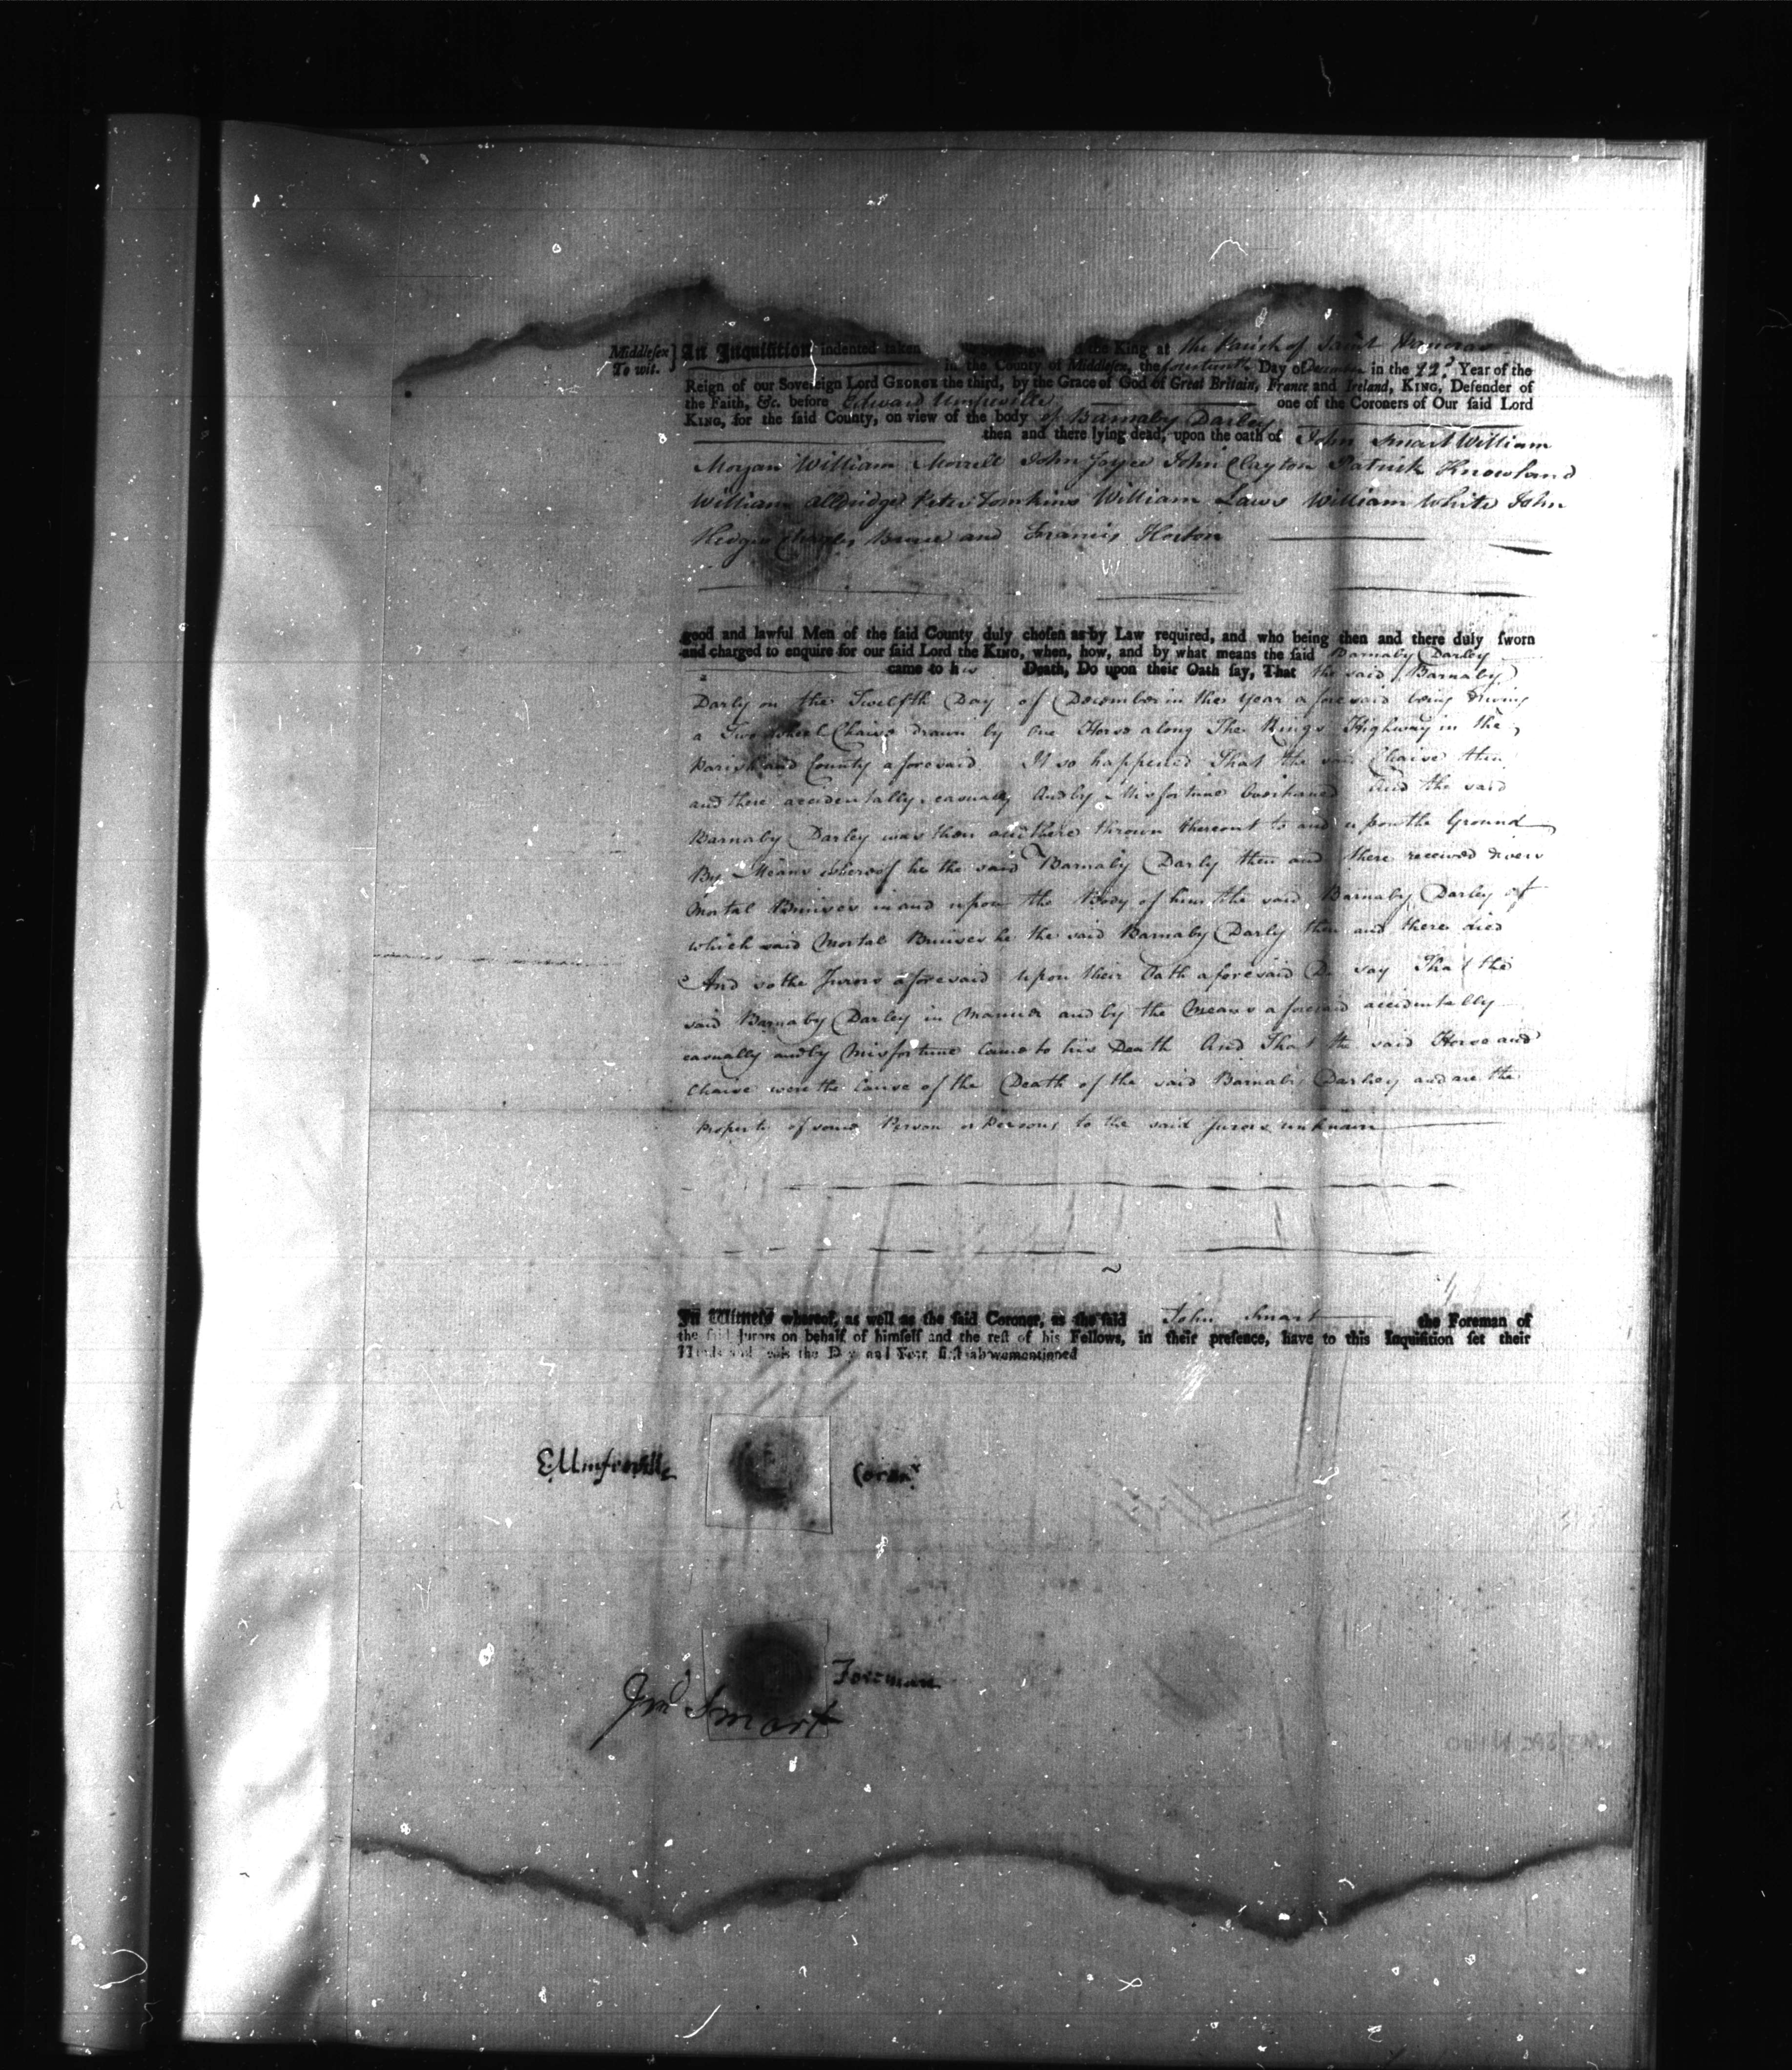 Middlesex } An Inquisition indented taken the King at the Parish of Saint Pancras
To wit. in the County of Middlesex, the fourteenth Day of December in the 22d Year of the
Reign of our Sovereign Lord GEORGE the third, by the Grace of God of Great Britain, France and Ireland, KING, Defender of
the Faith, &c. before Edward Umfreville one of the Coroners of Our said Lord
KING, for the said County, on view of the body of Barnaby Darley
then and there lying dead, upon the oath of John Smart William
Morgan William Morrell John Joyce John Clayton Patrick Knowland
William Alldridge Peter Tomkins William Laws William White John
Hedges Charles Bruce and Francis Horton
good and lawful Men of the said County duly chosen as by Law required, and who being then and there duly sworn
and charged to enquire for our said Lord the KING, when, how, and by what means the said Barnaby Darley
came to his Death, Do upon their Oath say, That the said Barnaby
Darly on the Twelfth Day of December in the year aforesaid being driving
a Two Wheel Chaise drawn by One Horse along The Kings Highway in the
Parish and County aforesaid It so happened That the said Chaise then
and there accidentally, casually And by Misfortune Overturned And the said
Barnaby Darley was then and there thrown thereout to and upon the Ground
By Means whereof he the said Barnaby Darly then and there received divers
Mortal Bruises in and upon the Body of him the said Barnaby Darley of
which said Mortal Bruises he the said Barnaby Darly then and there died
And so the Jurors aforesaid upon their Oath aforesaid Do say That the
said Barnaby Darley in Manner and by the Means aforesaid accidentally
casually and by Misfortune Came to his Death And That the said Horse and
Chaise were the Cause of the Death of the said Barnaby Darley and are the
Property of some Person or Persons to the said Jurors unknown
In Witness whereof, as well as the said Coroner, as the said John Smart the Foreman of
the said Jurors on behalf of himself and the rest of his Fellows, in their presence, have to this Inquisition set their
Hands and Seals the Day and Year first abovementioned
E Umfreville Coronr.
Jno Smart Foreman